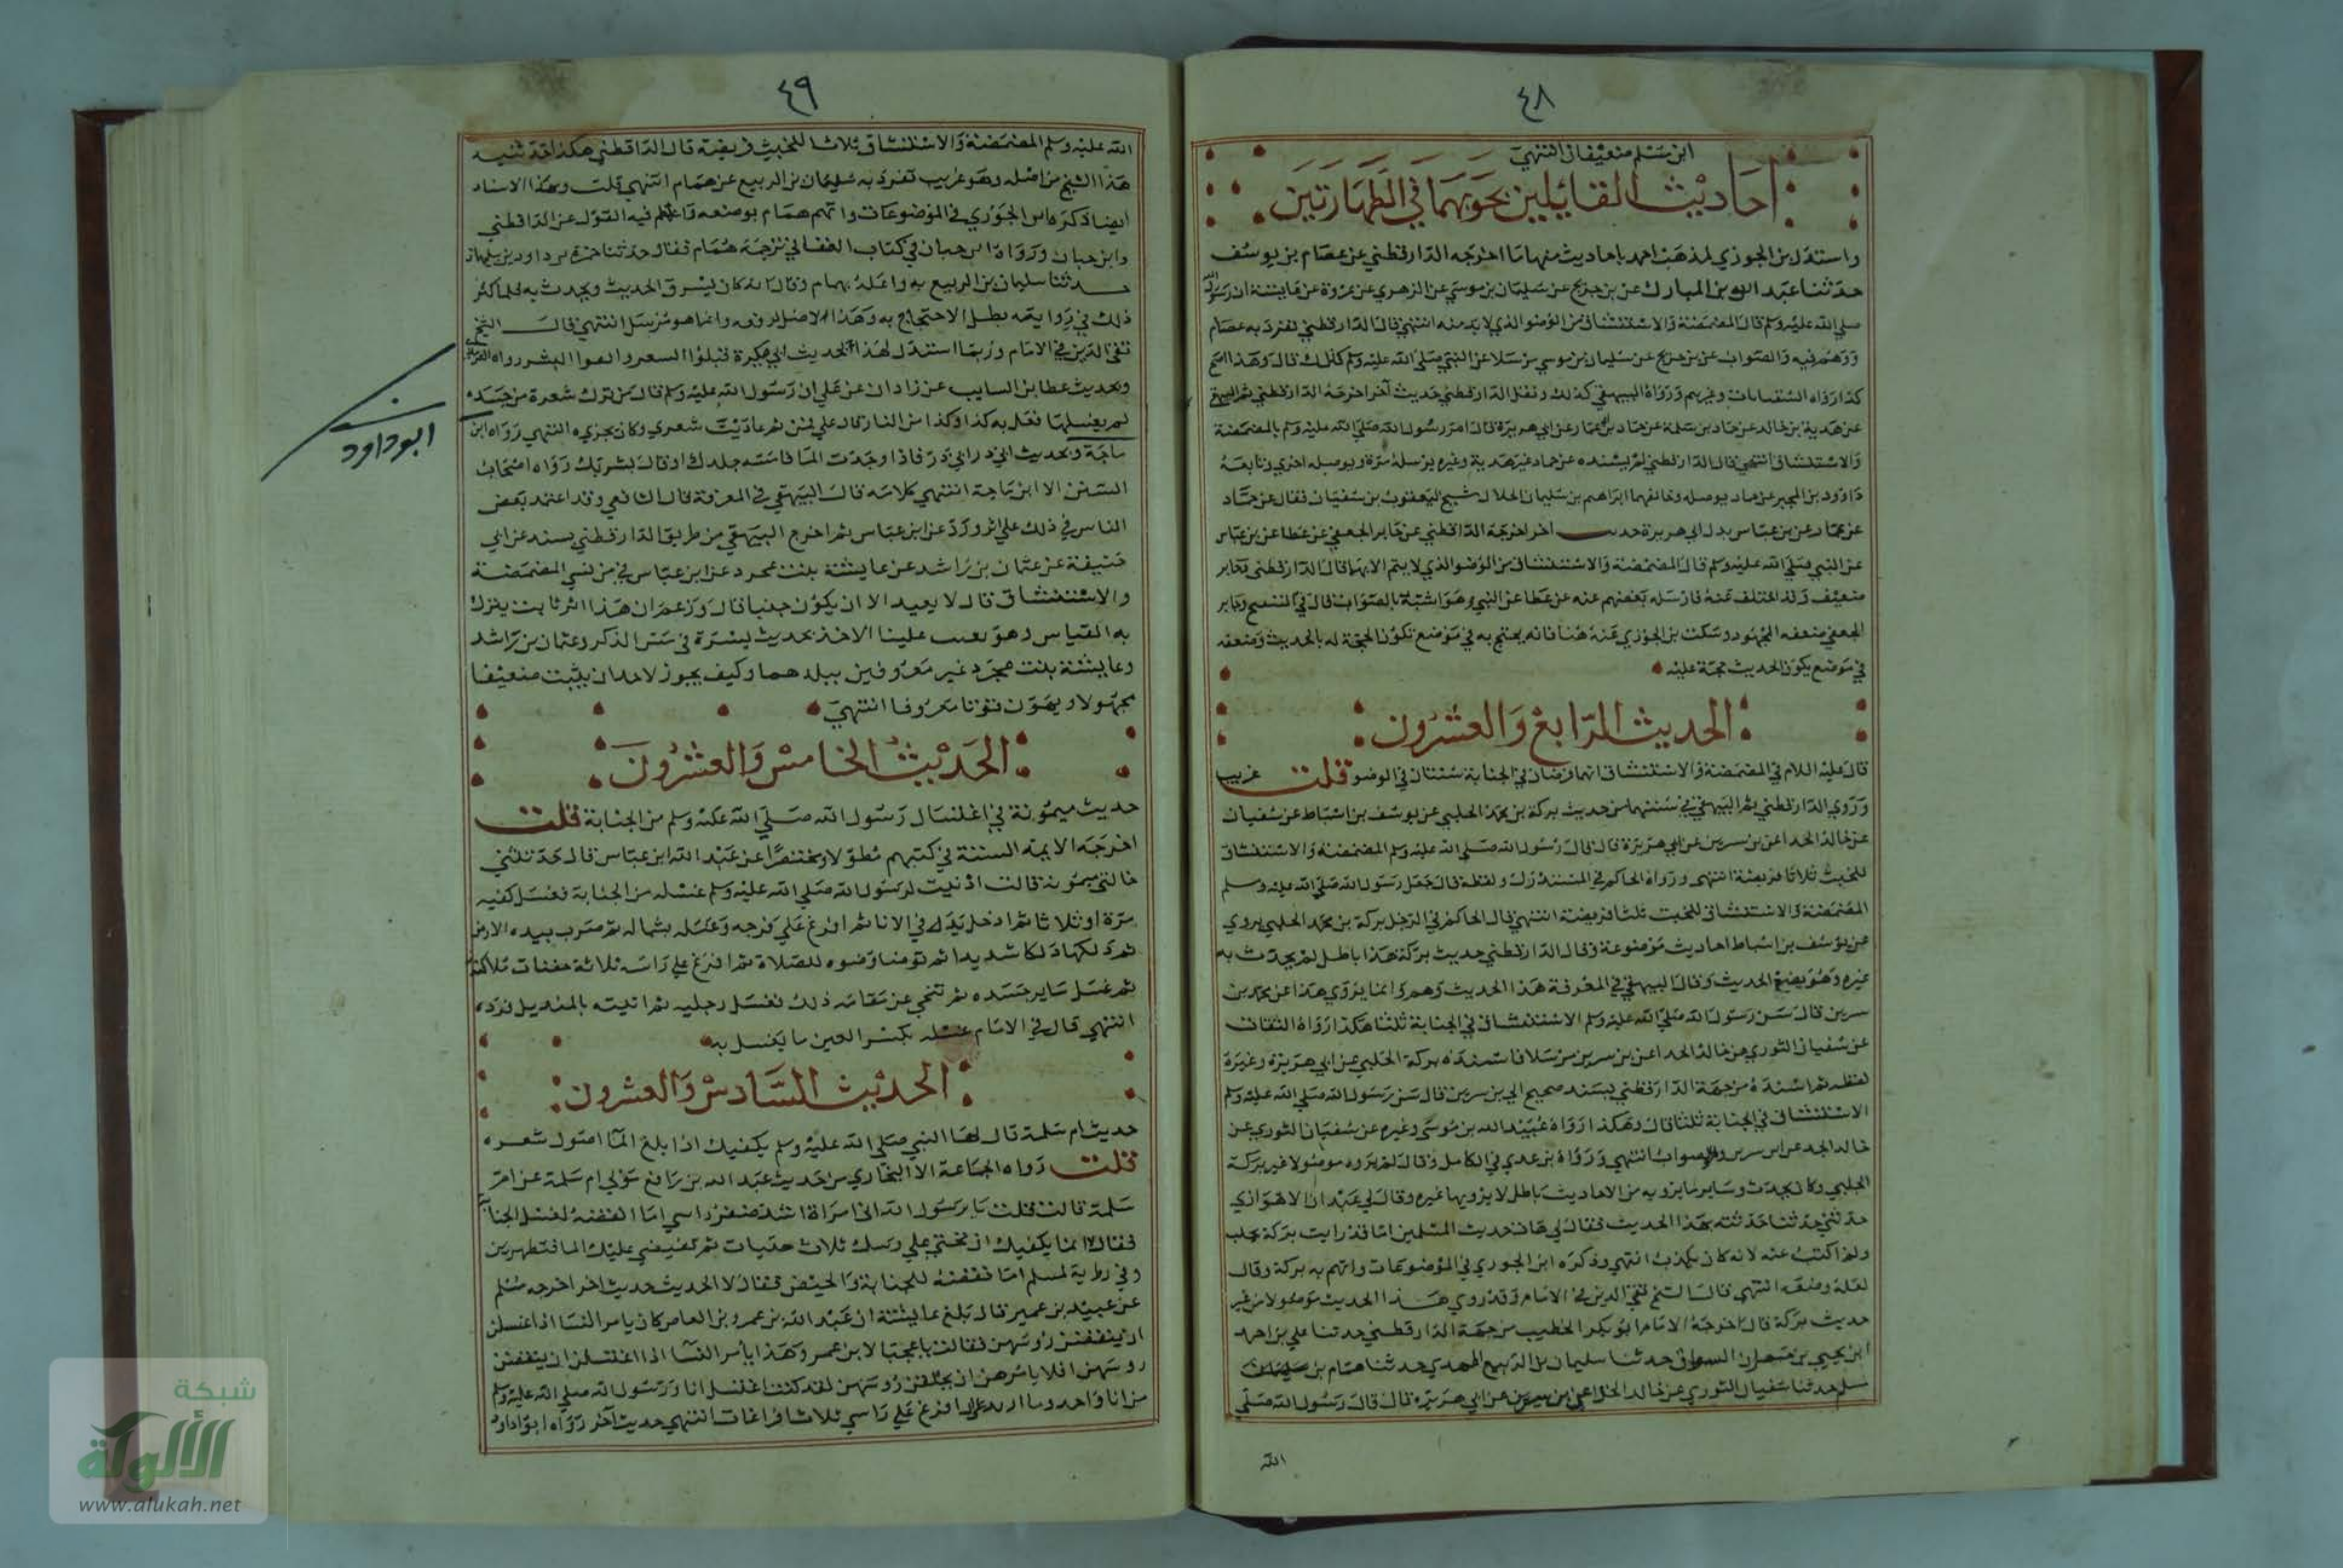 ٤٨
ابن سلم ضعيفان انتهى
احاديث القائلين بوجوبهما في الطهارتين
واستدل بن الجوزي لمذهب احمد باحاديث منها ما اخرجه الدارقطني عن عصام بن يوسف
حدثنا عبد الله بن المبارك عن بن جريج عن سليمان بن موسى عن الزهري عن عروة عن عايشة ان رسول الله
صلى الله عليه وسلم قال المضمضة والاستنشاق من الوضو الذي لا بد منه انتهى قال الدارقطني تفرد به عصام
ووهم فيه والصواب عن بن جريج عن سليمان بن موسى مرسلا عن النبي صلى الله عليه وسلم كذلك قال وهذا اصح
كذا رواه السفيانان وغيرهم ورواه البيهقي كذلك ونقل الدارقطني حديث آخر اخرجه الدارقطني ثم البيهقي
عن هدبة بن خالد عن حماد بن سلمة عن عمار بن ابي عمار عن ابي هريرة قال امر رسول الله صلى الله عليه وسلم بالمضمضة
والاستنشاق انتهى قال الدارقطني لم يسنده عن حماد غير هدبة وغيره يرسله مرة ويوصله اخرى وتابعه
داوود بن المحبر عن حماد يوصله وخالفهما ابراهيم بن سليمان الخلال شيخ ليعقوب بن سفيان فقال عن حماد
عن عمار عن بن عباس بدل ابي هريرة حديث اخر اخرجه الدارقطني عن جابر الجعفي عن عطا عن بن عباس
عن النبي صلى الله عليه وسلم قال المضمضة والاستنشاق من الوضو الذي لا يتم الا بهما قال الدارقطني وجابر
ضعيف وقد اختلف عنه فارسله بعضهم عنه عن عطا عن النبي وهو اشبه بالصواب قال في التنقيح وجابر
الجعفي ضعفه الجمهور وسكت بن الجوزي عنه هنا فانه يحتج به في موضع تكون الحجة له بالحديث وضعفه
في موضع يكون الحديث حجة عليه
الحديث الرابع والعشرون
قال عليه السلام في المضمضة والاستنشاق انهما فرضان في الجنابة سنتان في الوضو قلت غريب
وروى الدارقطني ثم البيهقي في سننهما من حديث بركة بن محمد الحلبي عن يوسف بن اسباط عن سفيان
عن خالد الحذا عن بن سيرين عن ابي هريرة قال قال رسول الله صلى الله عليه وسلم المضمضة والاستنشاق
للجنب ثلاثا فريضة انتهى ورواه الحاكم في المستدرك ولفظه قال جعل رسول الله صلى الله عليه وسلم
المضمضة والاستنشاق للجنب ثلثا فريضة انتهى قال الحاكم في المدخل بركة بن محمد الحلبي يروي
عن يوسف بن اسباط احاديث موضوعة وقال الدارقطني حديث بركة هذا باطل لم يحدث به
غيره وهو يضع الحديث وقال البيهقي في المعرفة هذا الحديث وهم وانما يروي هذا عن محمد بن
سيرين قال سن رسول الله صلى الله عليه وسلم الاستنشاق في الجنابة ثلثا هكذا رواه الثقات
عن سفيان الثوري عن خالد الحذا عن بن سيرين مرسلا فاسنده بركة الحلبي عن ابي هريرة وغيره
لفظه ثم اسنده من جهة الدارقطني بسند صحيح الى بن سيرين قال سن رسول الله صلى الله عليه وسلم
الاستنشاق في الجنابة ثلثا قال وهكذا رواه عبيد الله بن موسى وغيره عن سفيان الثوري عن
خالد الحذا عن ابن سيرين والصواب انتهى ورواه بن عدي في الكامل وقال لم يروه موصولا غير بركة
الحلبي وكان يحدث وساير ما يرويه من الاحاديث باطل لا يرويها غيره وقال لي عبدان الاهوازي
حدثني حدثنا حدثته بهذا الحديث فقال لي هات حديث المسلمين اما قد رايت بركة بحلب
ولم اكتب عنه لانه كان يكذب انتهى وذكره ابن الجوزي في الموضوعات واتهم به بركة وقال
لعله وضعه انتهى قال الشيخ تقي الدين في الامام وقد روي هذا الحديث موصولا من غير
حديث بركة قال اخرجه الامام ابو بكر الخطيب من جهة الدارقطني حدثنا علي بن احمد
ابن يحيى بن حدثنا سليمان بن الربيع النهدي حدثنا همام بن
مسلم حدثنا سفيان الثوري عن خالد الحذا عن بن سيرين عن ابي هريرة قال قال رسول الله صلى
الله
٤٩
الله عليه وسلم المضمضة والاستنشاق ثلاثا للجنب فريضة قال الدارقطني هكذا حدثنيه
هذا الشيخ من اصله وهو غريب تفرد به سليمان بن الربيع عن همام انتهى قلت وهذا الاسناد
ايضا ذكره ابن الجوزي في الموضوعات واتهم همام بوضعه واغلظ فيه القول عن الدارقطني
وابن حبان ورواه ابن حبان في كتاب الضعفا في ترجمة همام فقال حدثنا حمزة بن داود بن سليمان
حدثنا سليمان بن الربيع به واعله بهمام وقال انه كان يسرق الحديث ويحدث به فلما كثر
ذلك في روايته بطل الاحتجاج به وهذا لا اصل لرفعه وانما هو مرسل انتهى قال الشيخ
تقي الدين في الامام وربما استدل لهذا بحديث ابي هريرة فبلوا الشعر وانقوا البشر رواه
وبحديث عطا بن السايب عن زادان عن علي ان رسول الله عليه وسلم قال من ترك شعرة من جسده
لم يغسلها فعل به كذا وكذا من النار قال علي فمن ثم عاديت شعري وكان يجزه انتهى رواه ابن
ابو داود
ماجة وبحديث ابي ذر فاذا وجدت الما فامسه جلدك او قال بشرتك رواه اصحاب
السنن الا ابن ماجة انتهى كلامه قال البيهقي في المعرفة قال الشافعي وقد اعتمد بعض
الناس في ذلك على اثر ورد عن ابن عباس ثم اخرج البيهقي من طريق الدارقطني بسند عن ابي
حنيفة عن عثمان بن راشد عن عايشة بنت عجرد عن ابن عباس في من نسي المضمضة
والاستنشاق قال لا يعيد الا ان يكون جنبا قال وزعم ان هذا اثر ثابت يترك
به القياس وهو يعيب علينا الاخذ بحديث بسرة في مس الذكر وعثمان بن راشد
وعايشة بنت عجرد غير معروفين ببلدهما وكيف يجوز لاحد ان يثبت ضعيفا
مجهولا ويوهن قويا معروفا انتهى
الحديث الخامس والعشرون
حديث ميمونة في اغتسال رسول الله صلى الله عليه وسلم من الجنابة قلت
اخرجه الايمة الستة في كتبهم مطولا ومختصرا عن عبد الله ابن عباس قال حدثتني
خالتي ميمونة قالت ادنيت لرسول الله صلى الله عليه وسلم غسله من الجنابة فغسل كفيه
مرة او ثلاثا ثم ادخل يده في الانا ثم افرغ على فرجه وغسله بشماله ثم ضرب بيده الارض
ثم دلكها دلكا شديدا ثم توضا وضوه للصلاة ثم افرغ على راسه ثلاثة حفنات ملا كفه
ثم غسل ساير جسده ثم تنحى عن مقامه ذلك فغسل رجليه ثم اتيته بالمنديل فرده
انتهى قال في الامام غسله بكسر الغين ما يغسل به
الحديث السادس والعشرون
حديث ام سلمة قال لها النبي صلى الله عليه وسلم يكفيك اذا بلغ الما اصول شعره
قلت رواه الجماعة الا البخاري من حديث عبد الله بن رافع مولى ام سلمة عن ام
سلمة قالت قلت يا رسول الله اني امراة اشد ضفر راسي افانقضه لغسل الجنابة
فقال لا انما يكفيك ان تحثي على رسك ثلاث حثيات ثم تفيضي عليك الما فتطهرين
وفي رواية لمسلم افانقضه للجنابة والحيض فقال لا الحديث حديث اخر اخرجه مسلم
عن عبيد بن عمير قال بلغ عايشة ان عبد الله بن عمرو بن العاص كان يامر النسا اذا اغتسلن
ان ينقضن رؤسهن فقالت يا عجبا لابن عمرو هذا يأمر النسا اذا اغتسلن ان ينقضن
روسهن افلا يامرهن ان يحلقن رؤسهن لقد كنت اغتسل انا ورسول الله صلى الله عليه وسلم
من انا واحد وما ازيد على ان افرغ على راسي ثلاث افراغات انتهى حديث آخر رواه ابو داود
شبكة
الألوكة
www.alukah.net